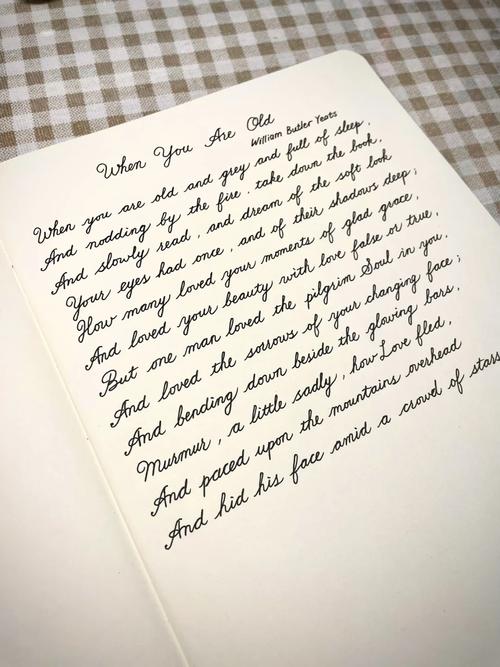 When You Are Old
William Butler Yeats
When you are old and grey and full of sleep,
And nodding by the fire, take down the book,
And slowly read, and dream of the soft look
Your eyes had once, and of their shadows deep;
How many loved your moments of glad grace,
And loved your beauty with love false or true,
But one man loved the pilgrim Soul in you.
And loved the sorrows of your changing face;
And bending down beside the glowing bars,
Murmur, a little sadly, how Love fled,
And paced upon the mountains overhead
And hid his face amid a crowd of stars